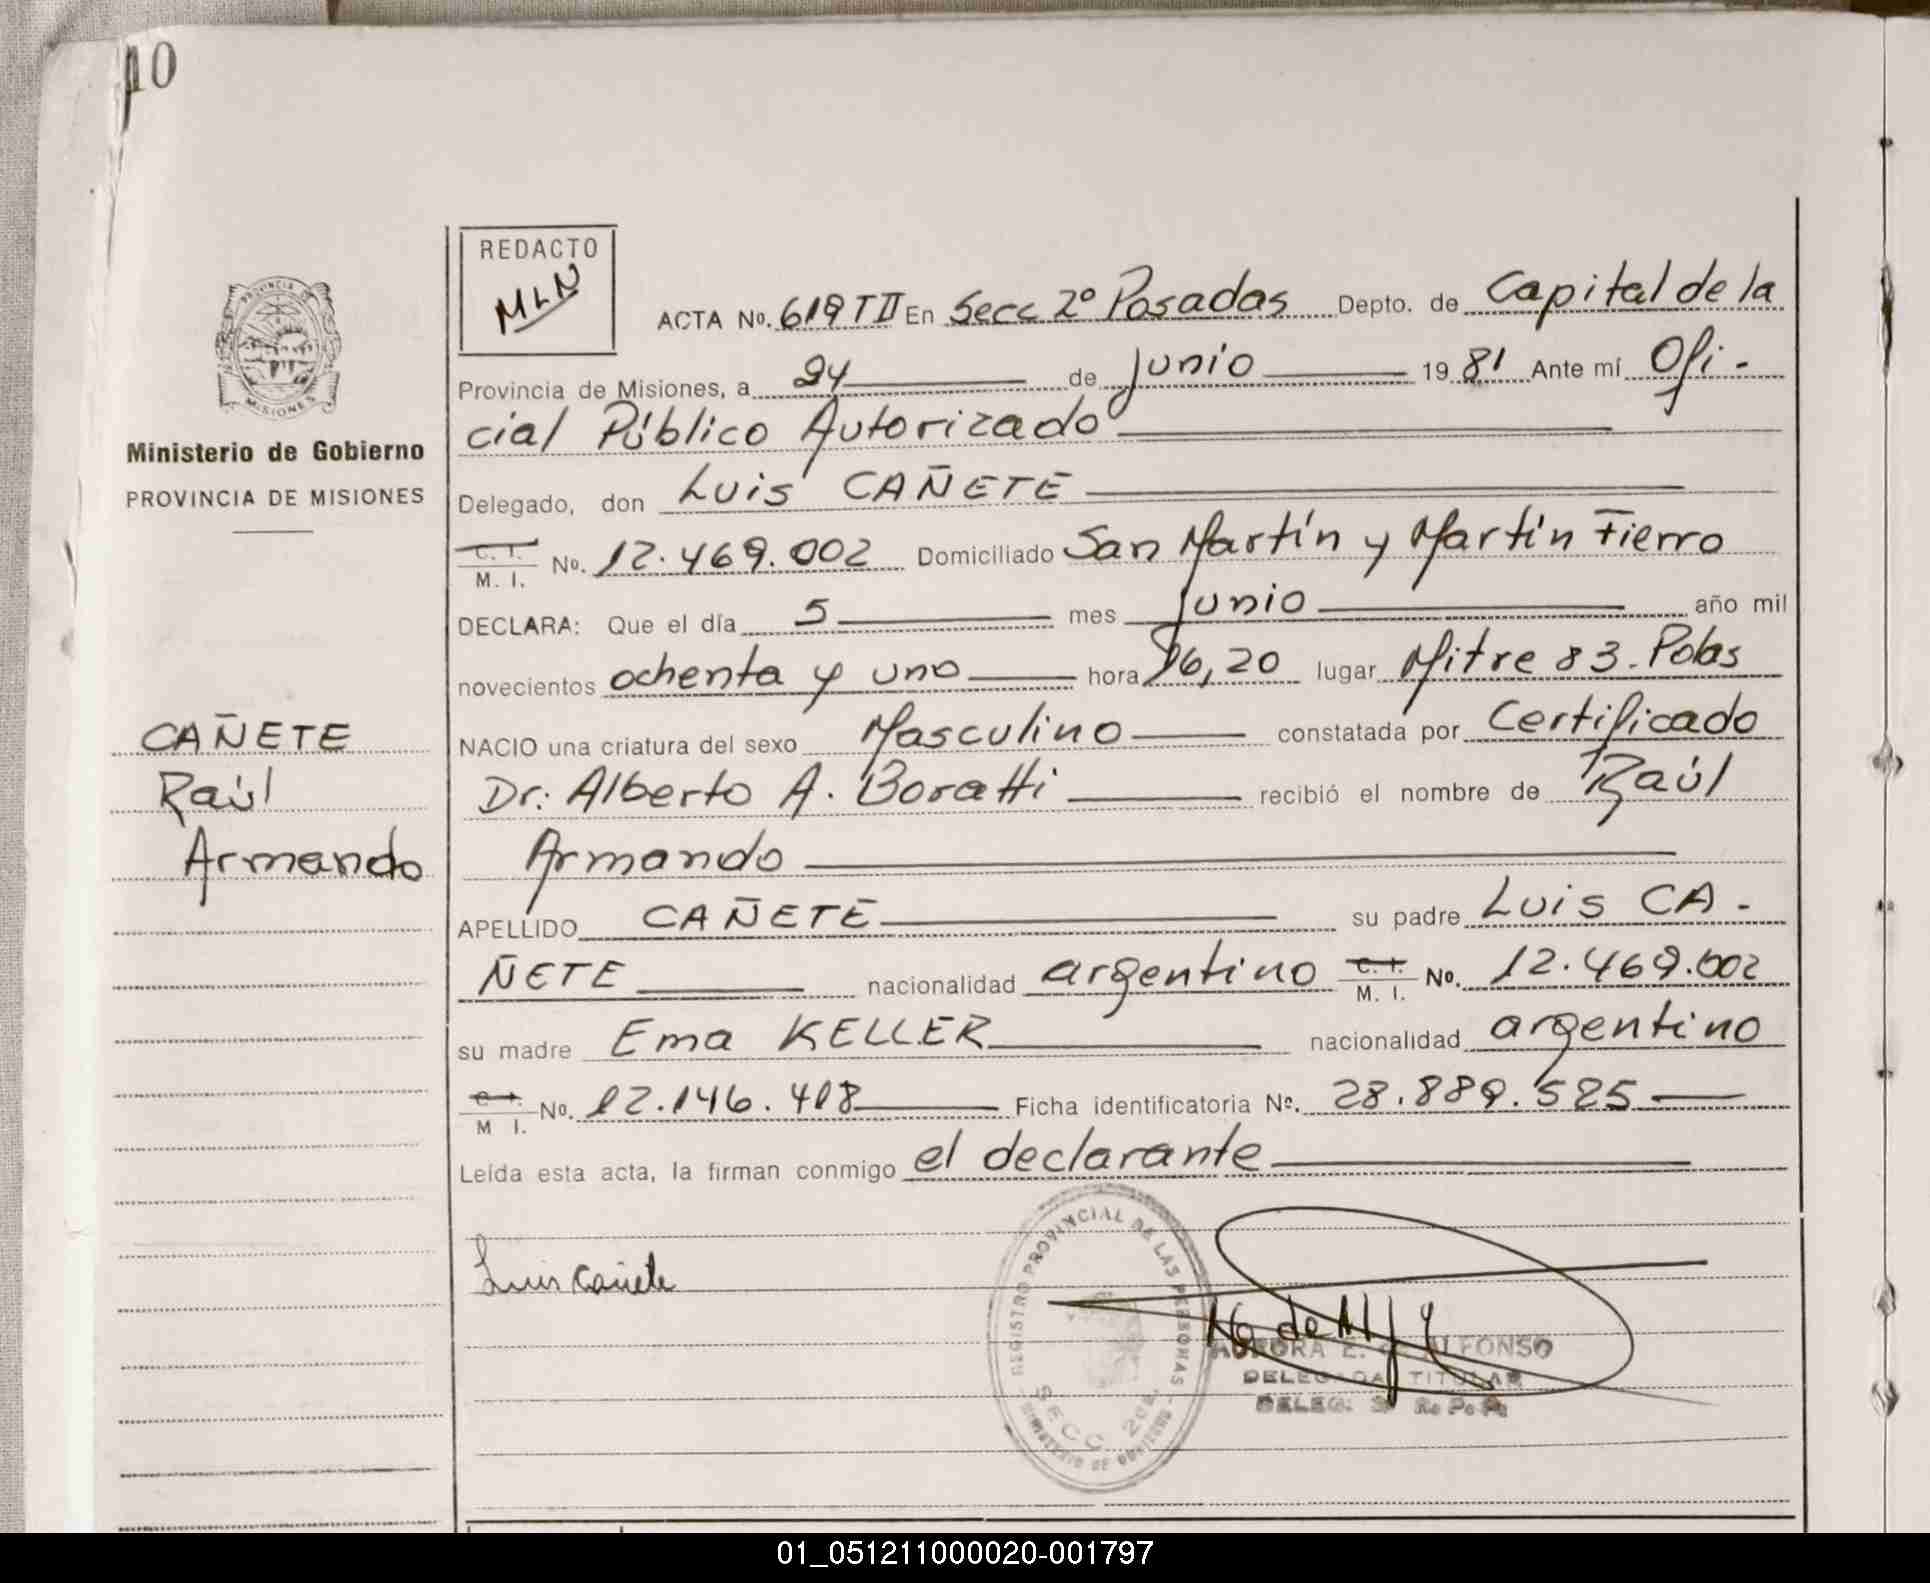 10
REDACTO
MLN
PROVINCIA DE
MISIONES
Ministerio de Gobierno
PROVINCIA DE MISIONES
CAÑETE
Raúl
Armando
ACTA No. 619 TII En Secc 2º Posadas Depto. de Capital de la
Provincia de Misiones, a 24 de junio 1981 Ante mí Ofi-
cial Público Autorizado
Delegado, don Luis CAÑETE
C. I.
M. I. No. 12.469.002 Domiciliado San Martín y Martín Fierro
DECLARA: Que el día 5 mes junio año mil
novecientos ochenta y uno hora 16,20 lugar Mitre 83. Pdas
NACIO una criatura del sexo Masculino constatada por Certificado
Dr: Alberto A. Boratti recibió el nombre de Raúl
Armando
APELLIDO CAÑETE su padre Luis CA-
ÑETE nacionalidad argentino C. I. M. I. No. 12.469.002
su madre Ema KELLER nacionalidad argentino
C. I.
M I. No. 12.146.418 Ficha identificatoria No. 28.889.585
Leída esta acta, la firman conmigo el declarante
Luis Cañete
REGISTRO PROVINCIAL DE LAS PERSONAS
SECC. 2da.
MINISTERIO DE GOBIERNO
AURORA E. de ALFONSO
DELEGADA TITULAR
01_051211000020-001797